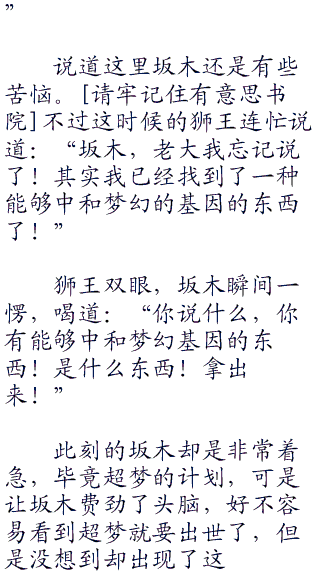 ”
说道这里坂木还是有些
苦恼。[请牢记住有意思书
院]不过这时候的狮王连忙说
道：“坂木，老大我忘记说
了！其实我已经找到了一种
能够中和梦幻的基因的东西
了！”
狮王双眼，坂木瞬间一
愣，喝道：“你说什么，你
有能够中和梦幻基因的东
西！是什么东西！拿出
来！”
此刻的坂木却是非常着
急，毕竟超梦的计划，可是
让坂木费劲了头脑，好不容
易看到超梦就要出世了，但
是没想到却出现了这